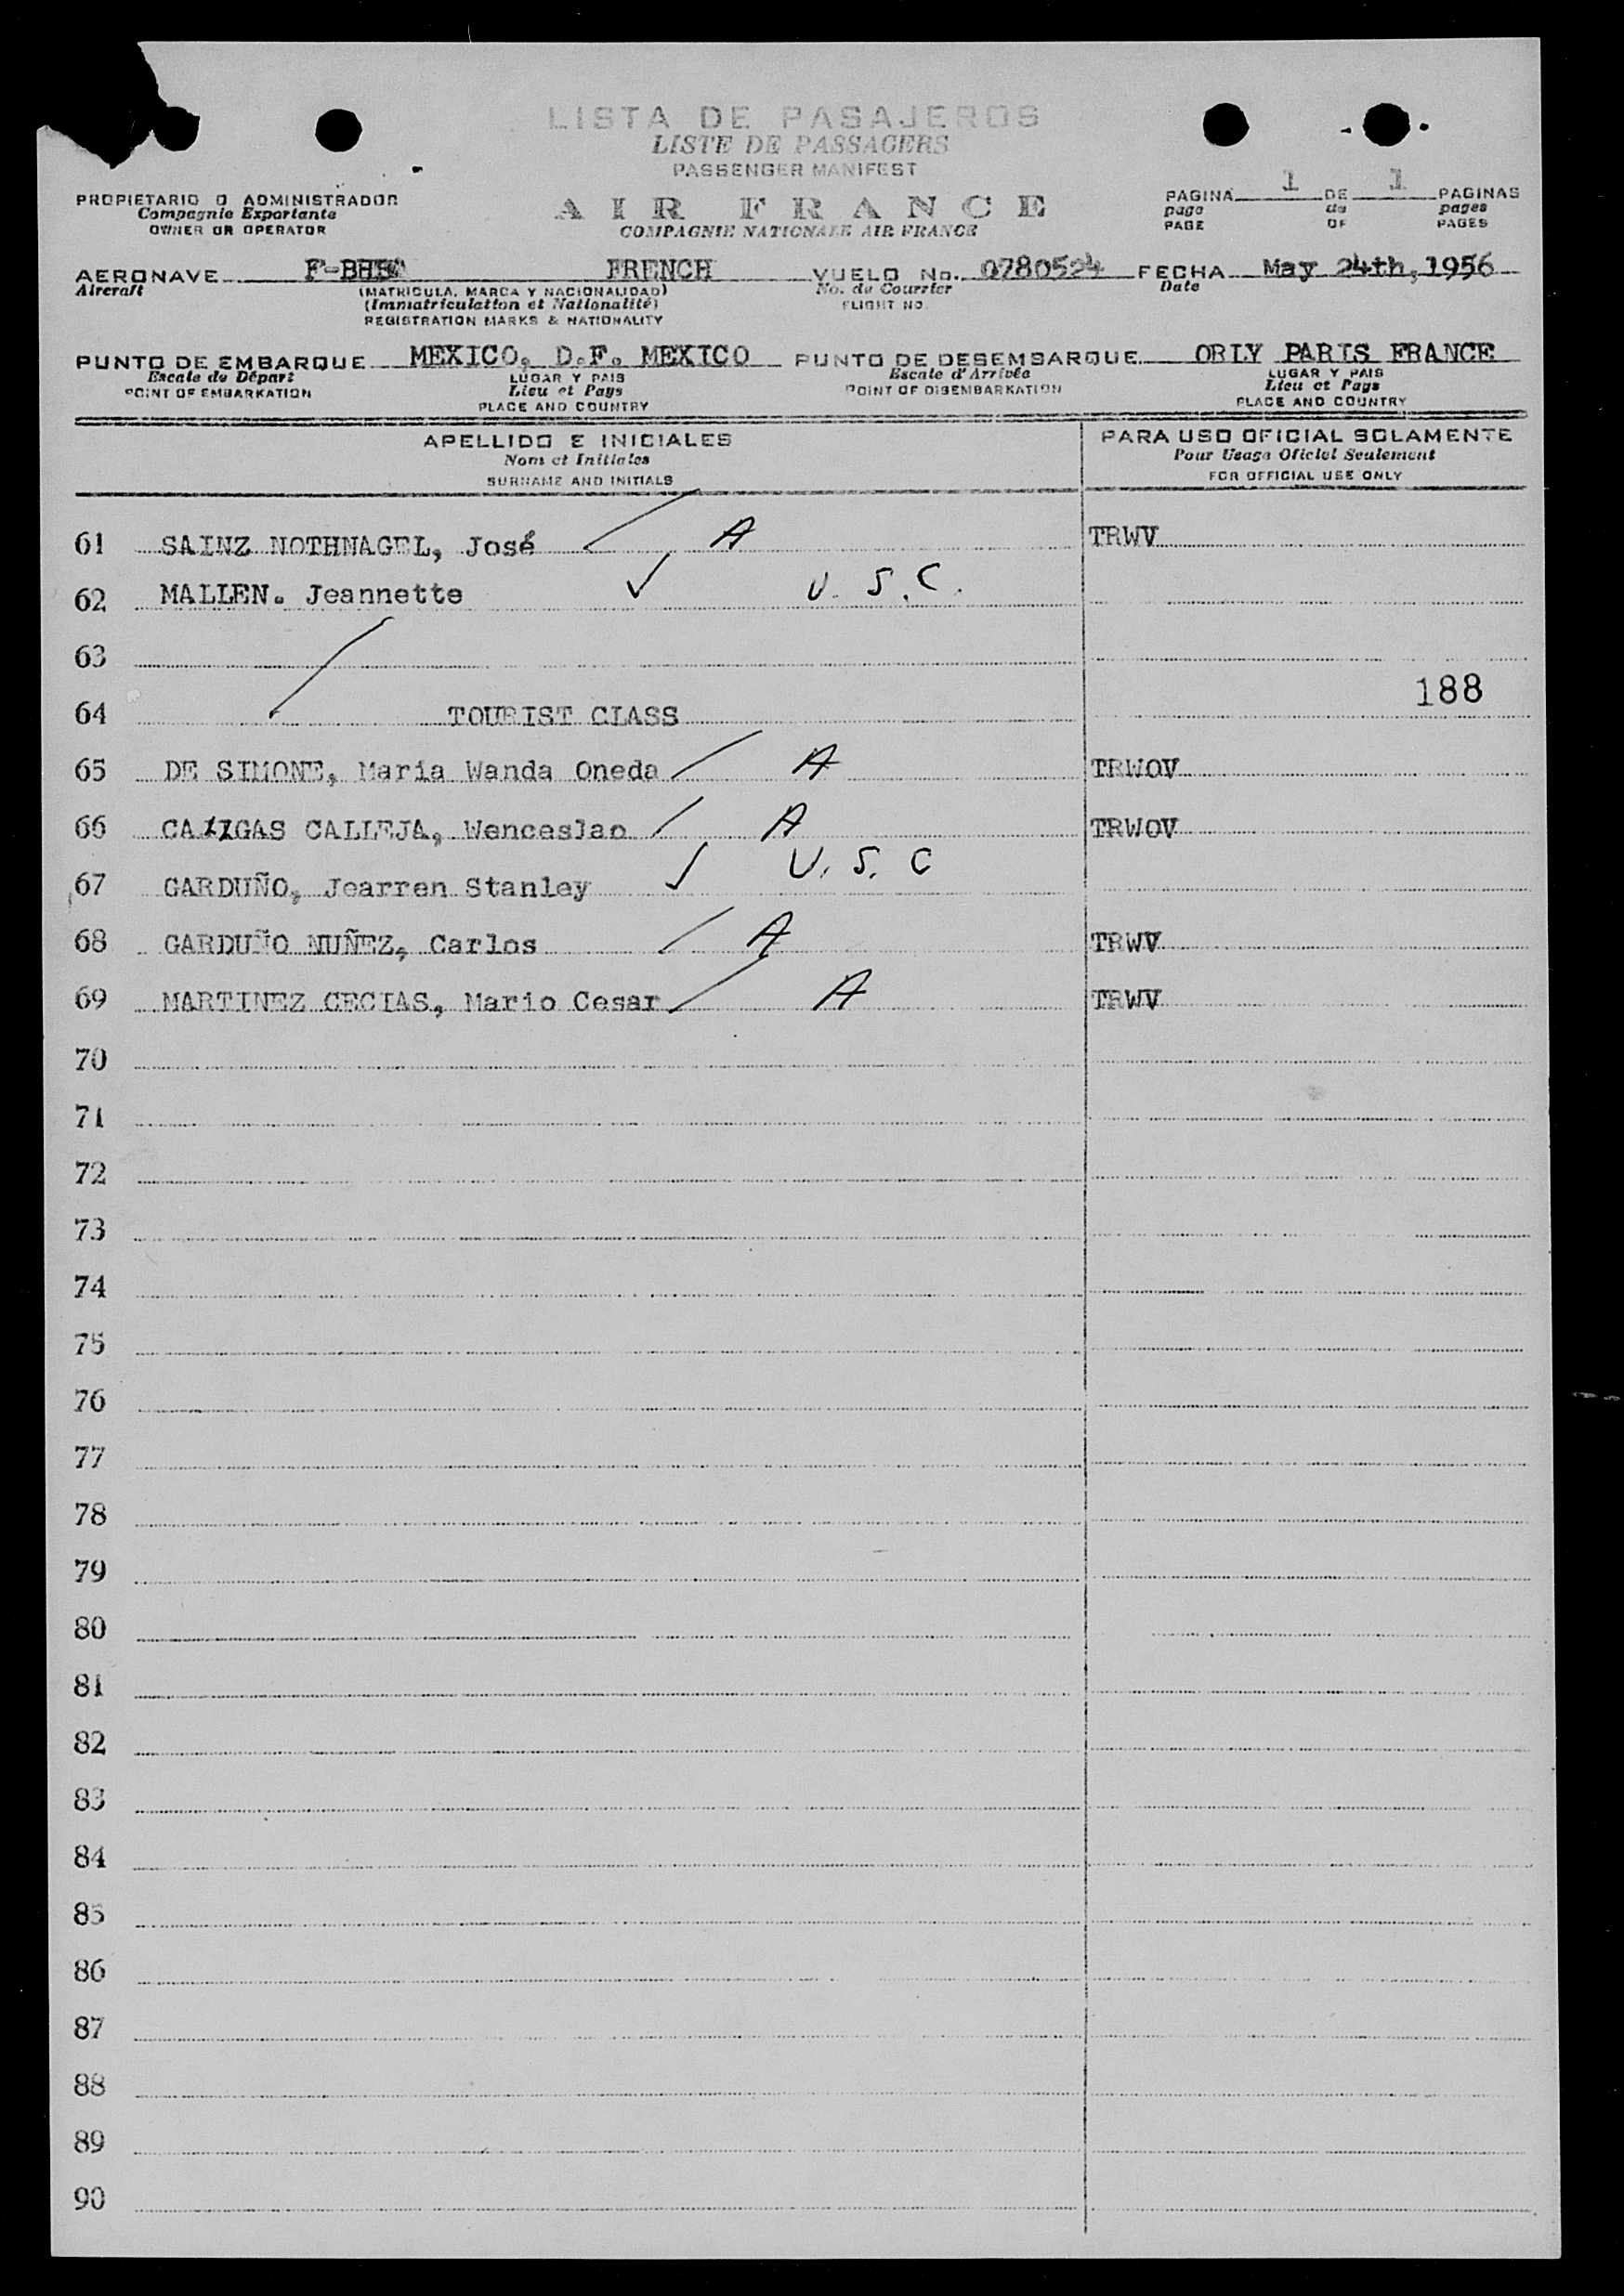 LISTA DE PASAJEROS
LISTE DE PASSAGERS
PASSENGER MANIFEST
PROPIETARIO O ADMINISTRADOR
Compagnie Exportante
OWNER OR OPERATOR
AIR FRANCE
COMPAGNIE NATIONALE AIR FRANCE
PAGINA 1 DE 1 PAGINAS
page de pages
PAGE OF PAGES
AERONAVE FRENCH VUELO No. 0780524 FECHA May 24th, 1956
Aircraft (MATRICULA, MARCA Y NACIONALIDAD) No. de Courrier Date
(Immatriculation et Nationalité) FLIGHT NO.
REGISTRATION MARKS & NATIONALITY
PUNTO DE EMBARQUE MEXICO, D.F. MEXICO PUNTO DE DESEMBARQUE ORLY PARIS FRANCE
Escale de Départ LUGAR Y PAIS Escale d'Arrivée LUGAR Y PAIS
POINT OF EMBARKATION Lieu et Pays POINT OF DISEMBARKATION Lieu et Pays
PLACE AND COUNTRY PLACE AND COUNTRY
APELLIDO E INICIALES PARA USO OFICIAL SOLAMENTE
Nom et Initiales Pour Usage Oficiel Seulement
SURNAME AND INITIALS FOR OFFICIAL USE ONLY
61 SAINZ NOTHNAGEL, José A TRWV
62 MALLEN. Jeannette U.S.C.
63
188
64 TOURIST CLASS
65 DE SIMONE, Maria Wanda Oneda A TRWOV
66 CALLEJA, Wenceslao A TRWOV
67 GARDUÑO, Jearren Stanley U.S.C
68 GARDUÑO NUÑEZ, Carlos A TRWV
69 MARTINEZ CECIAS, Mario Cesar A TRWV
70
71
72
73
74
75
76
77
78
79
80
81
82
83
84
85
86
87
88
89
90